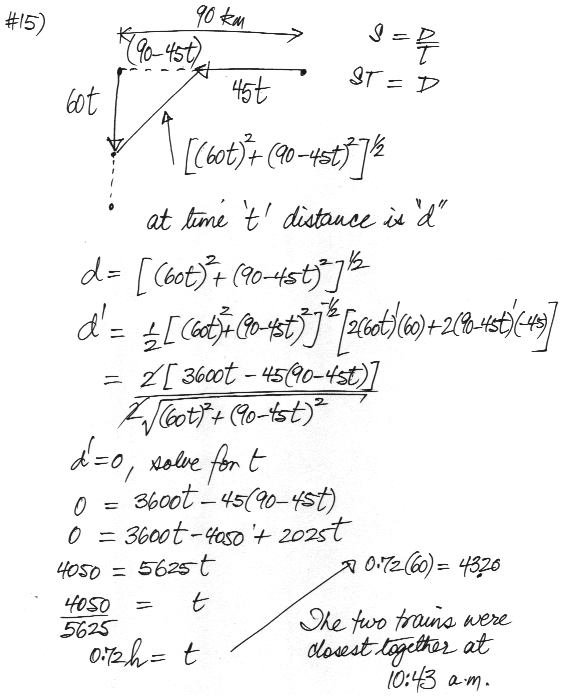 #15)
90 km
(90-45t)
60t
45t
S = D/T
ST = D
[(60t)²+(90-45t)²]^½
at time 't' distance is "d"
d = [(60t)²+(90-45t)²]^½
d' = ½[(60t)²+(90-45t)²]^-½[2(60t)'(60)+2(90-45t)'(-45)]
= 2[3600t-45(90-45t)] / 2√(60t)²+(90-45t)²
d'=0, solve for t
0 = 3600t-45(90-45t)
0 = 3600t-4050+2025t
4050 = 5625t
4050/5625 = t
0.72h = t
0.72(60) = 43.20
The two trains were
closest together at
10:43 a.m.